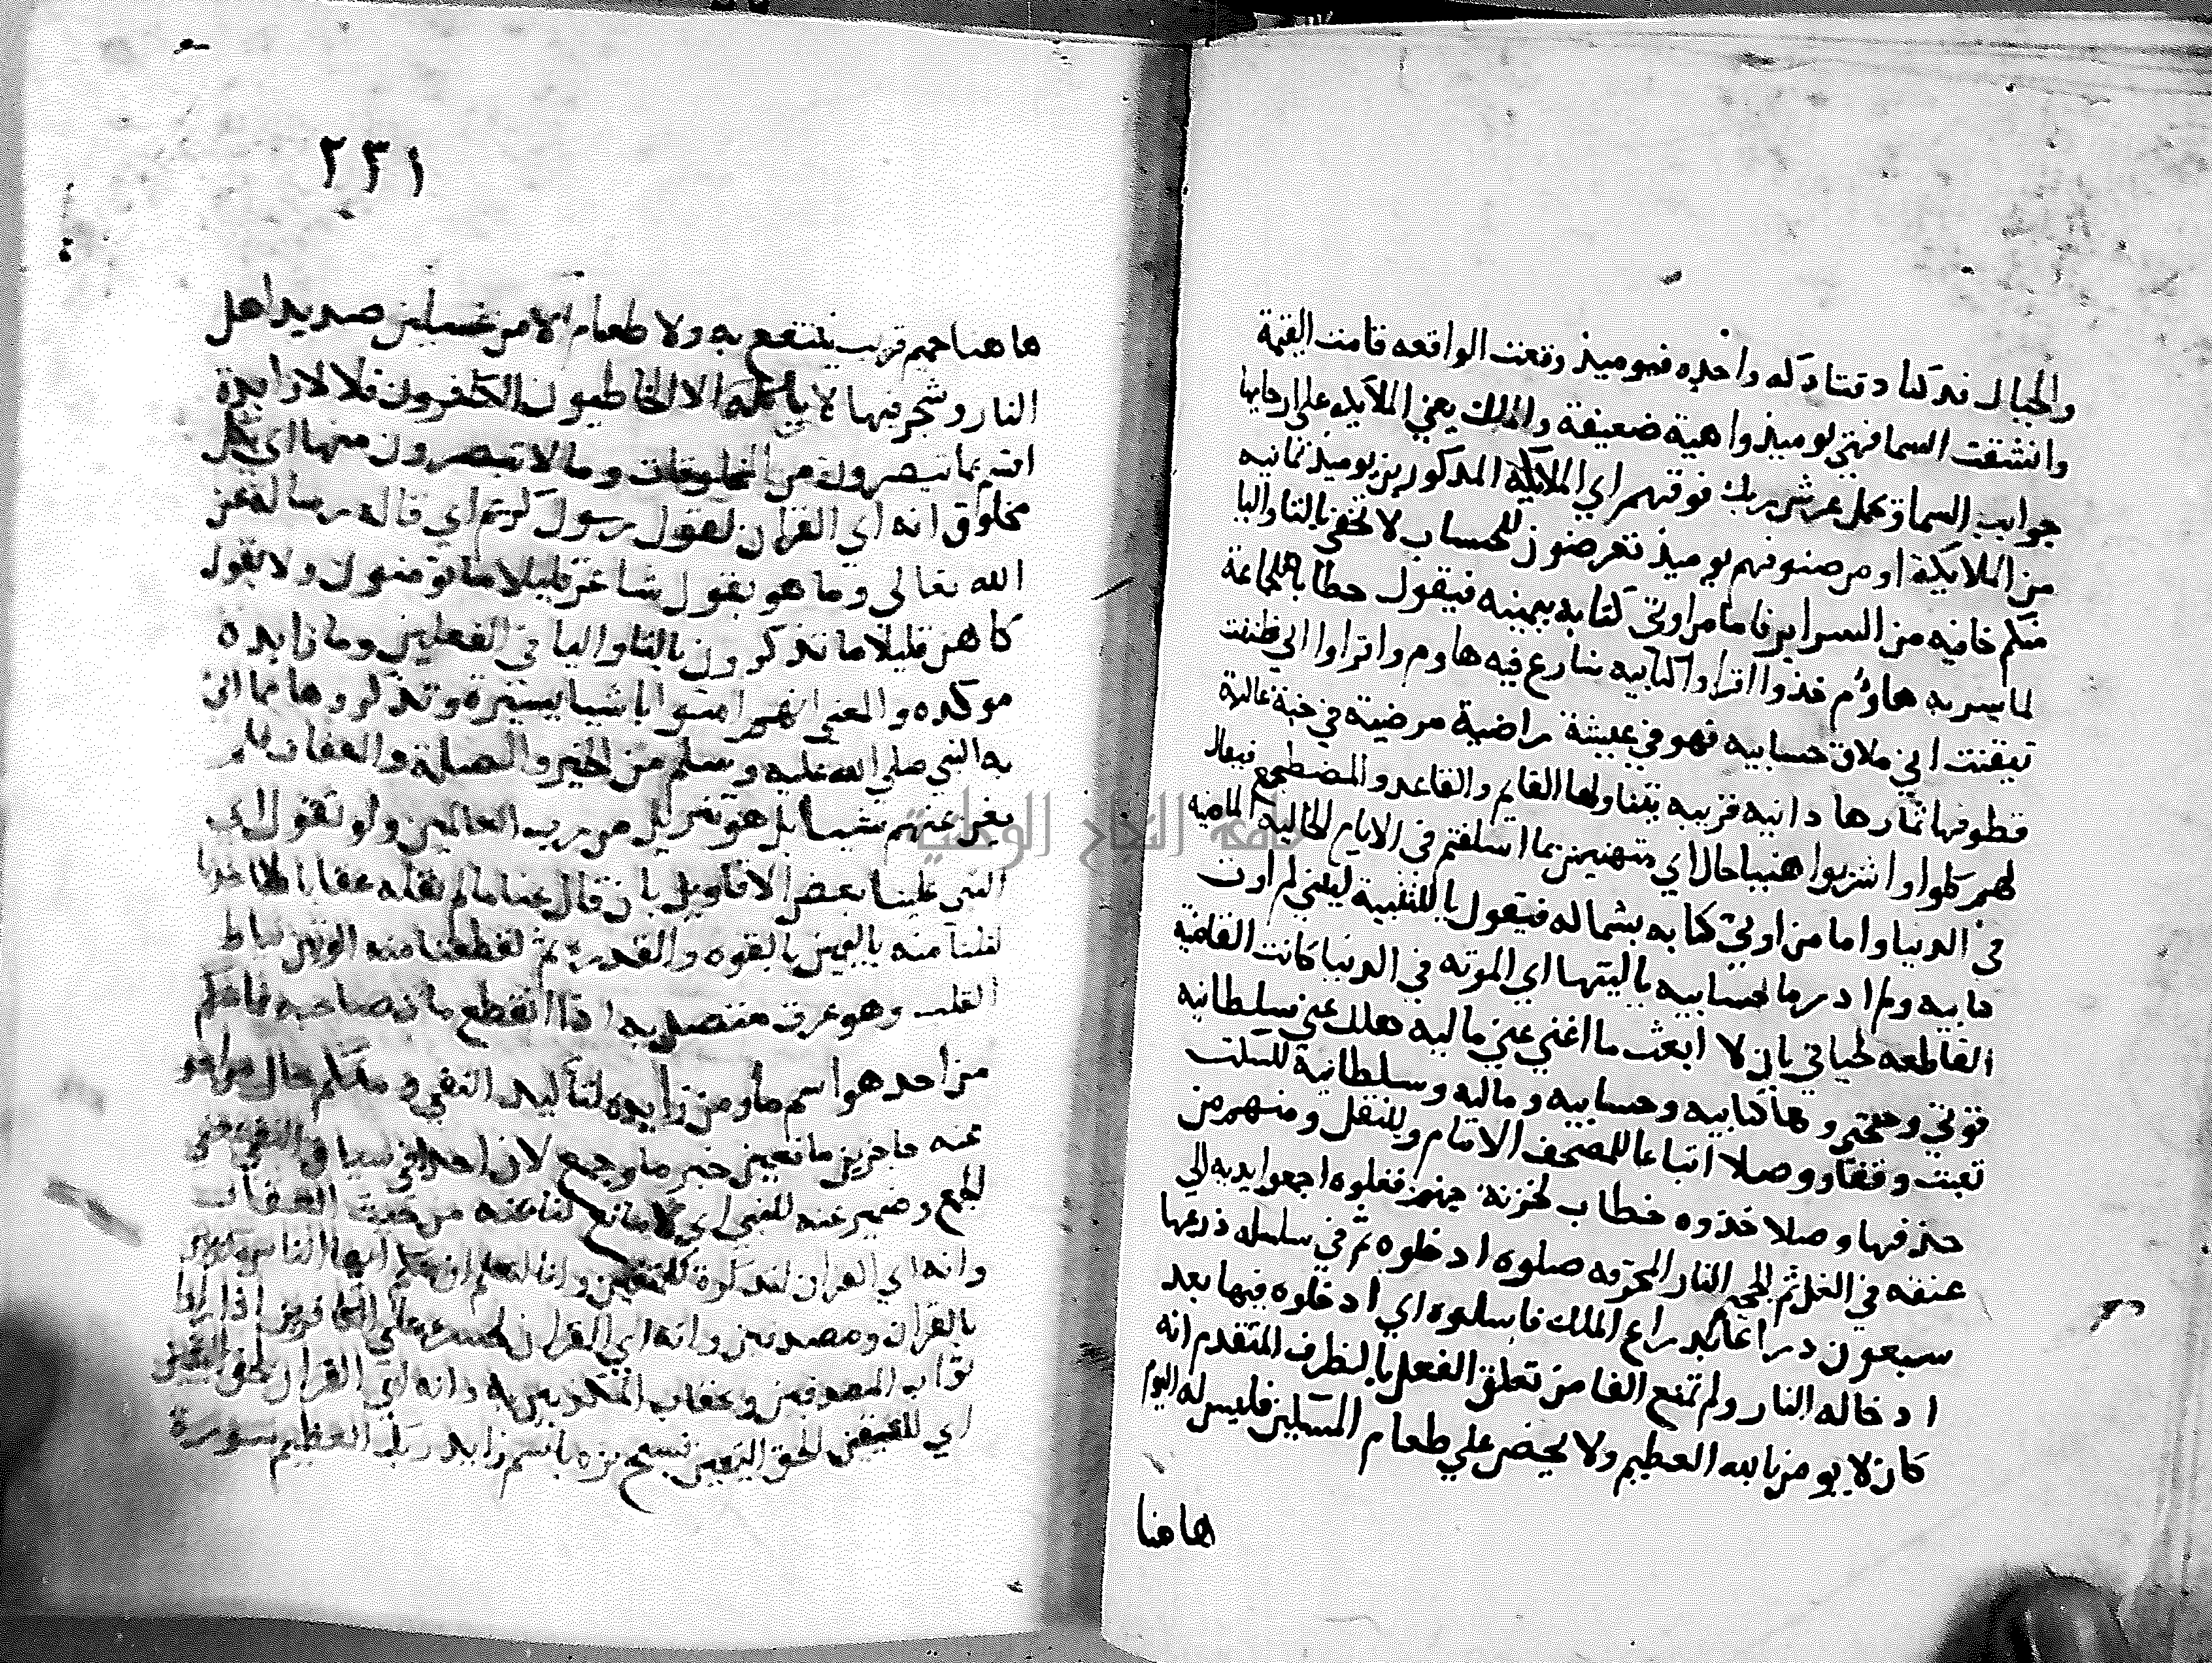 والجبال فدكتا دقتا دكه واحده فيوميذ وقعت الواقعه قامت القيمة
وانشقت السما فهي يوميذ واهية ضعيفة والملك يعني الملايكه على ارجايها
جوانب السما ويحمل عرش ربك فوقهم اي الملايكة المذكورين يوميذ ثمانيه
من الملايكة او من صفوفهم يوميذ تعرضون للحساب لا تخفى بالتا واليا
منكم خافيه من السراير فاما من اوتي كتابه بيمينه فيقول خطابا لجماعة
لما يسر به هاوم خذوا اقراوا كتابيه تنازع فيه هاوم واقراوا اني ظننت
تيقنت اني ملاق حسابيه فهو في عيشة راضية مرضية في جنة عالية
قطوفها ثمارها دانيه قريبه يتناولها القايم والقاعد والمضطجع فيقال
لهم كلوا واشربوا هنيا حال اي متهنيين بما اسلفتم في الايام الخاليه الماضيه
في الدنيا واما من اوتي كتابه بشماله فيقول يا للتنبيه ليتني لم اوت
كتابيه ولم ادر ما حسابيه ياليتها اي الموته في الدنيا كانت القاضية
القاطعه لحياتي بان لا ابعث ما اغني عني ماليه هلك عني سلطانيه
قوتي وحجتي وها كتابيه وحسابيه وماليه وسلطانية للسكت
تثبت وقفا ووصلا اتباعا للمصحف الامام وللنقل ومنهم من
حذفها وصلا خذوه خطاب لخزنة جهنم فغلوه اجمعوا يديه الى
عنقه في الغل ثم الجحيم النار المحرقه صلوه ادخلوه ثم في سلسله ذرعها
سبعون ذراعا بذراع الملك فاسلكوه اي ادخلوه فيها بعد
ادخاله النار ولم تمنع الفا من تعلق الفعل بالظرف المتقدم انه
كان لا يومن بالله العظيم ولا يحض على طعام المسكين فليس له اليوم
هاهنا
٢٣١
هاهنا حميم قريب ينتفع به ولا طعام الا من غسلين صديد اهل
النار وشجر فيها لا ياكله الا الخاطيون الكفرون فلا لا زايدة
اقسم بما تبصرون من المخلوقات وما لا تبصرون منها اي بكل
مخلوق انه اي القران لقول رسول كريم اي قاله رسالة عن
الله تعالى وما هو بقول شاعر قليلا ما تومنون ولا بقول
كاهن قليلا ما تذكرون بالتا واليا في الفعلين وما زايده
موكده والمعنى انهم امنوا باشيا يسيرة وتذكروها مما اتى
به النبي صلى الله عليه وسلم من الخير والصلة والعفاف فلم
يغن عنهم شيا بل هو تنزيل من رب العالمين ولو تقول اي
النبي علينا بعض الاقاويل بان قال عنا ما لم نقله عقابا لاخذنا
لنلنا منه باليمين بالقوه والقدرة ثم لقطعنا منه الوتين نياط
القلب وهو عرق متصل به اذا انقطع مات صاحبه فما منكم
من احد هو اسم ما ومن زايده لتاكيد النفي ومنكم حال من احد
عنه حاجزين مانعين خبر ما وجمع لان احدا في سياق النفي بمعنى
الجمع وضمير عنه للنبي اي لا مانع لنا عنه من حيث العقاب
وانه اي القران لتذكرة للمتقين وانا لنعلم ان منكم ايها الناس مكذبين
بالقران ومصدقين وانه اي القران لحسرة على الكافرين اذا راوا
ثواب المصدقين وعقاب المكذبين به وانه اي القران لحق اليقين
اي لليقين الحق اليقين فسبح نزه باسم زايد ربك العظيم سورة